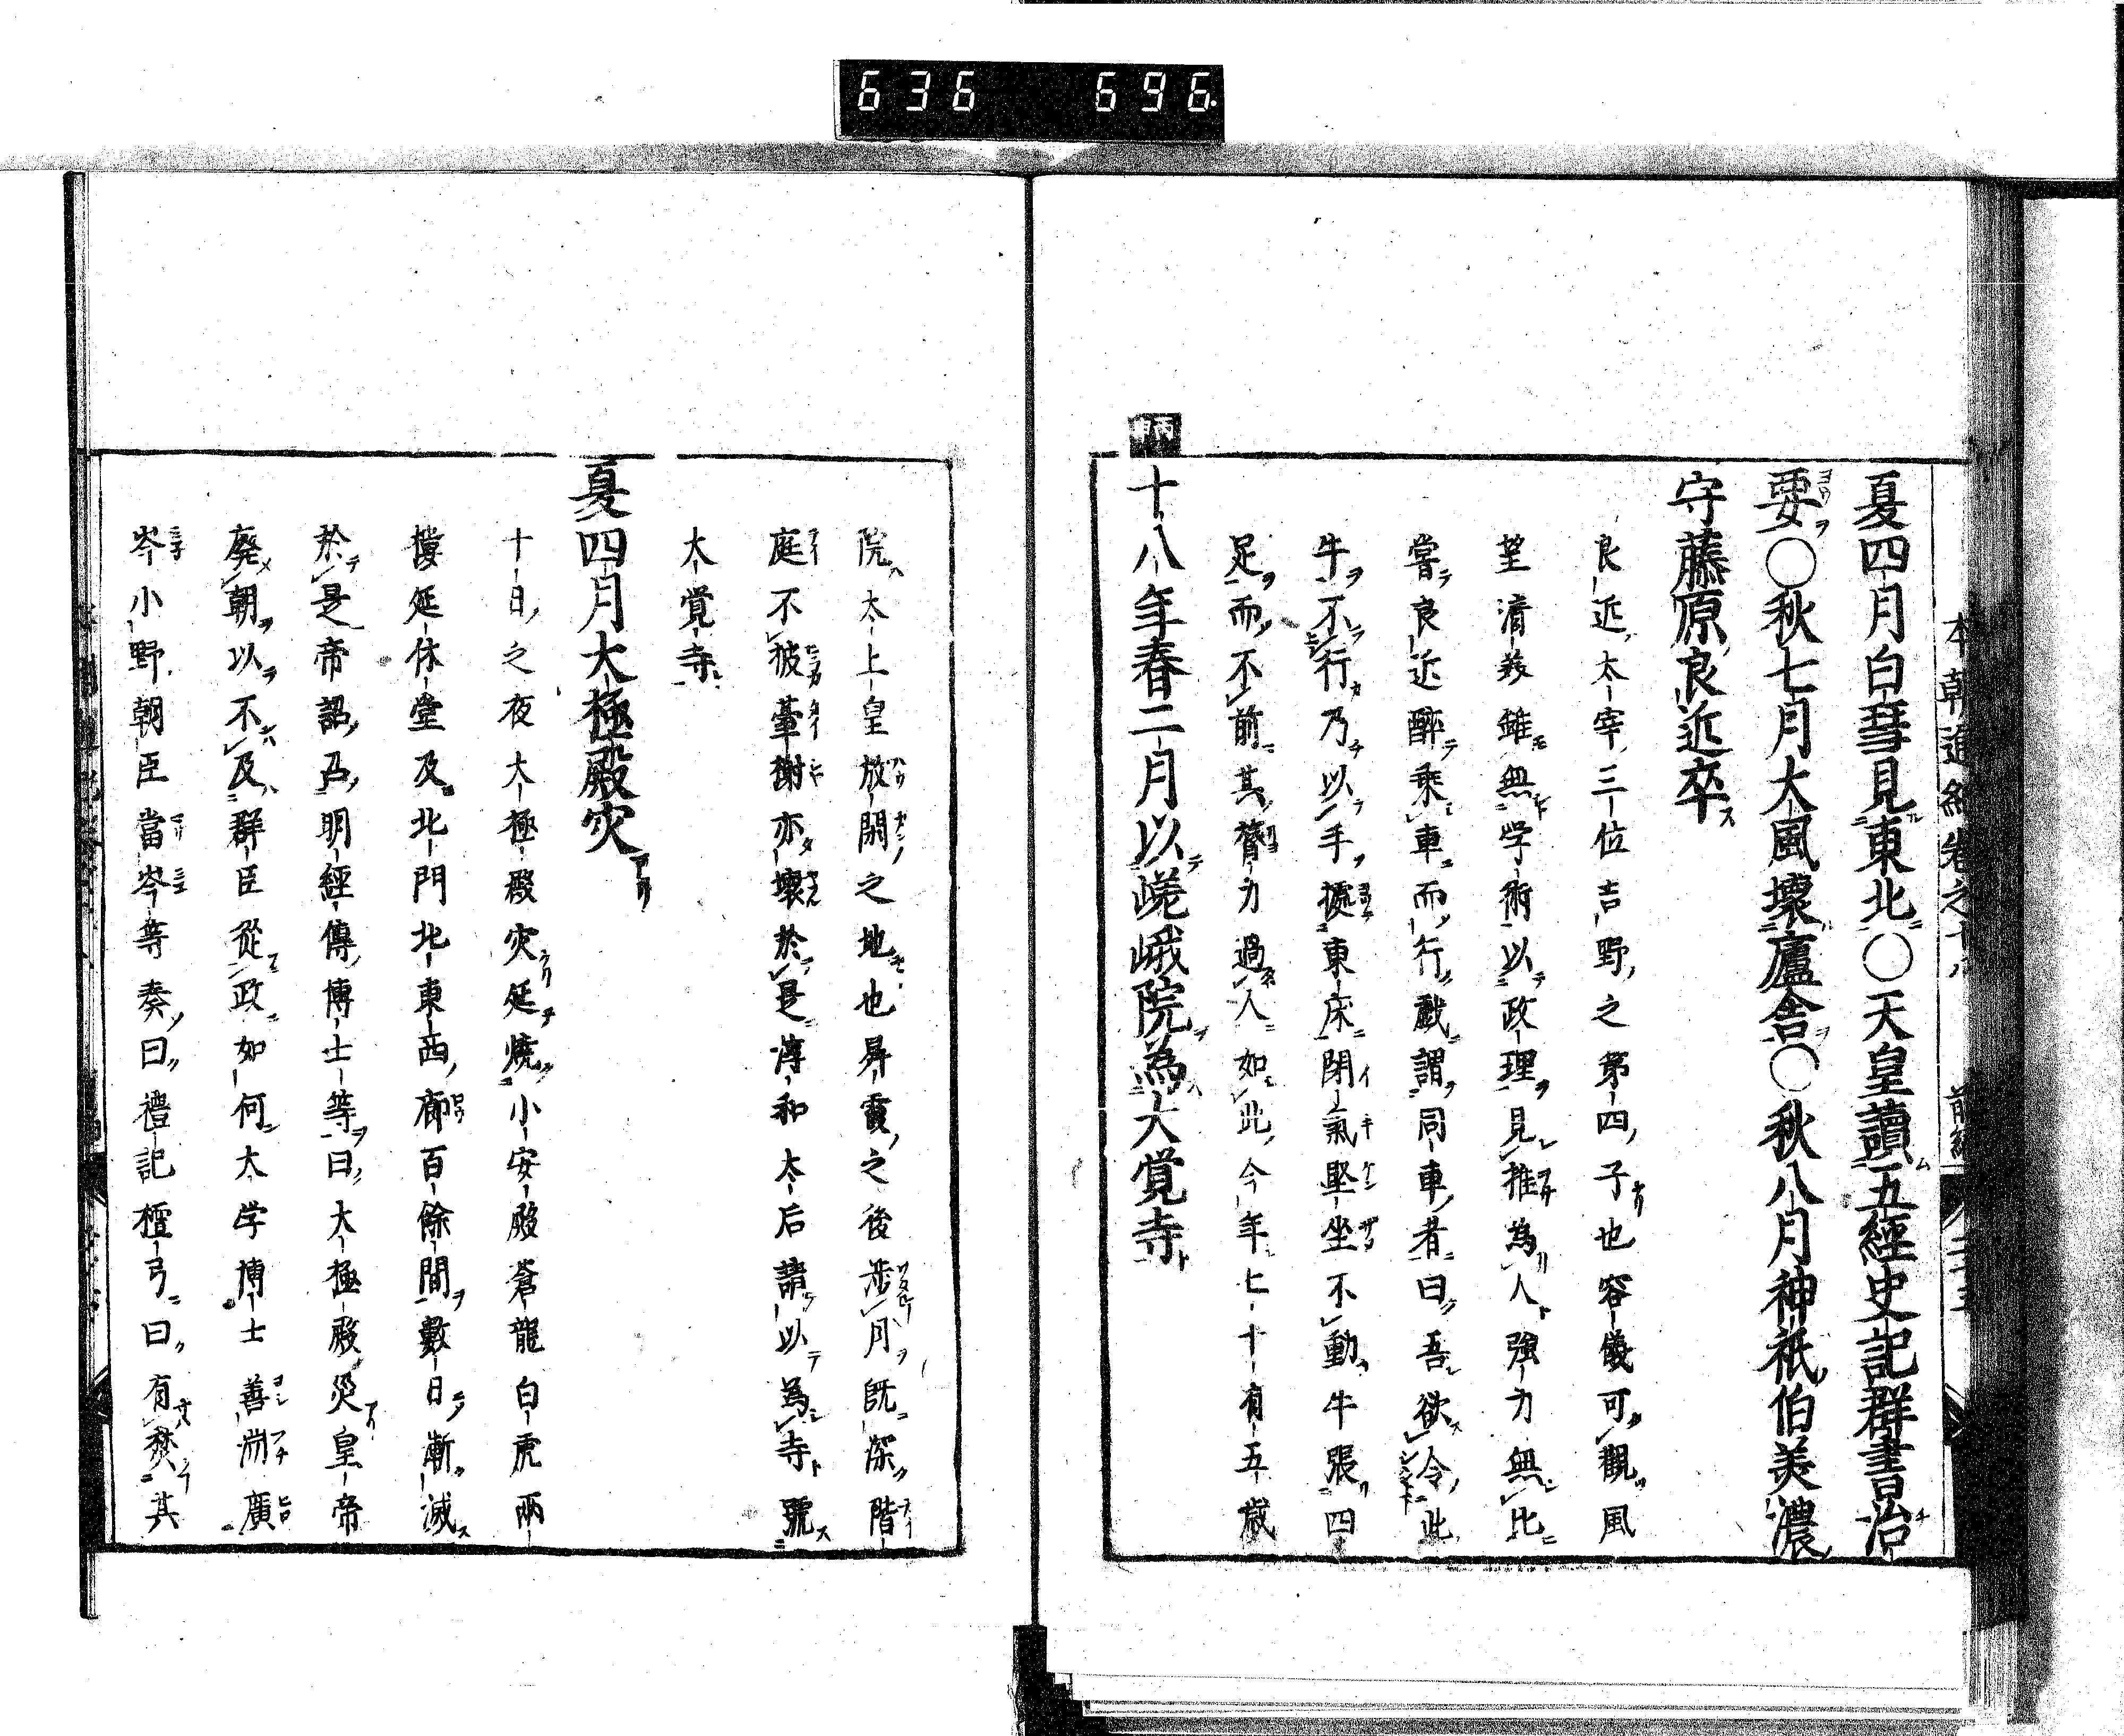 636 696
本朝通紀卷之十八 前編
夏四月白彗見東北○天皇讀五經史記群書治
要○秋七月大風壞廬舍○秋八月神祇伯美濃
守藤原良近卒
良近太宰三位吉野之第四子也容儀可觀風
望清美雖無学術以政理見推為人強力無比
嘗良近醉乘車而行戲謂同車者曰吾欲令此
牛不行乃以手據東床閉氣堅坐不動牛張四
足而不前其膂力過人如此今年七十有五歲
丙申
十八年春二月以嵯峨院為大覚寺
院太上皇放閑之地也昇霞之後涉月既深階
庭不披臺榭亦壞於是淳和太后請以為寺號
大覚寺
夏四月大極殿灾
十日之夜大極殿灾延燒小安殿蒼龍白虎兩
樓延休堂及北門北東西廊百餘間數日漸滅
於是帝詔召明經傳博士等曰大極殿災皇帝
廢朝以不及群臣從政如何太学博士善淵廣
岑小野朝臣當岑等奏曰禮記檀弓曰有焚其